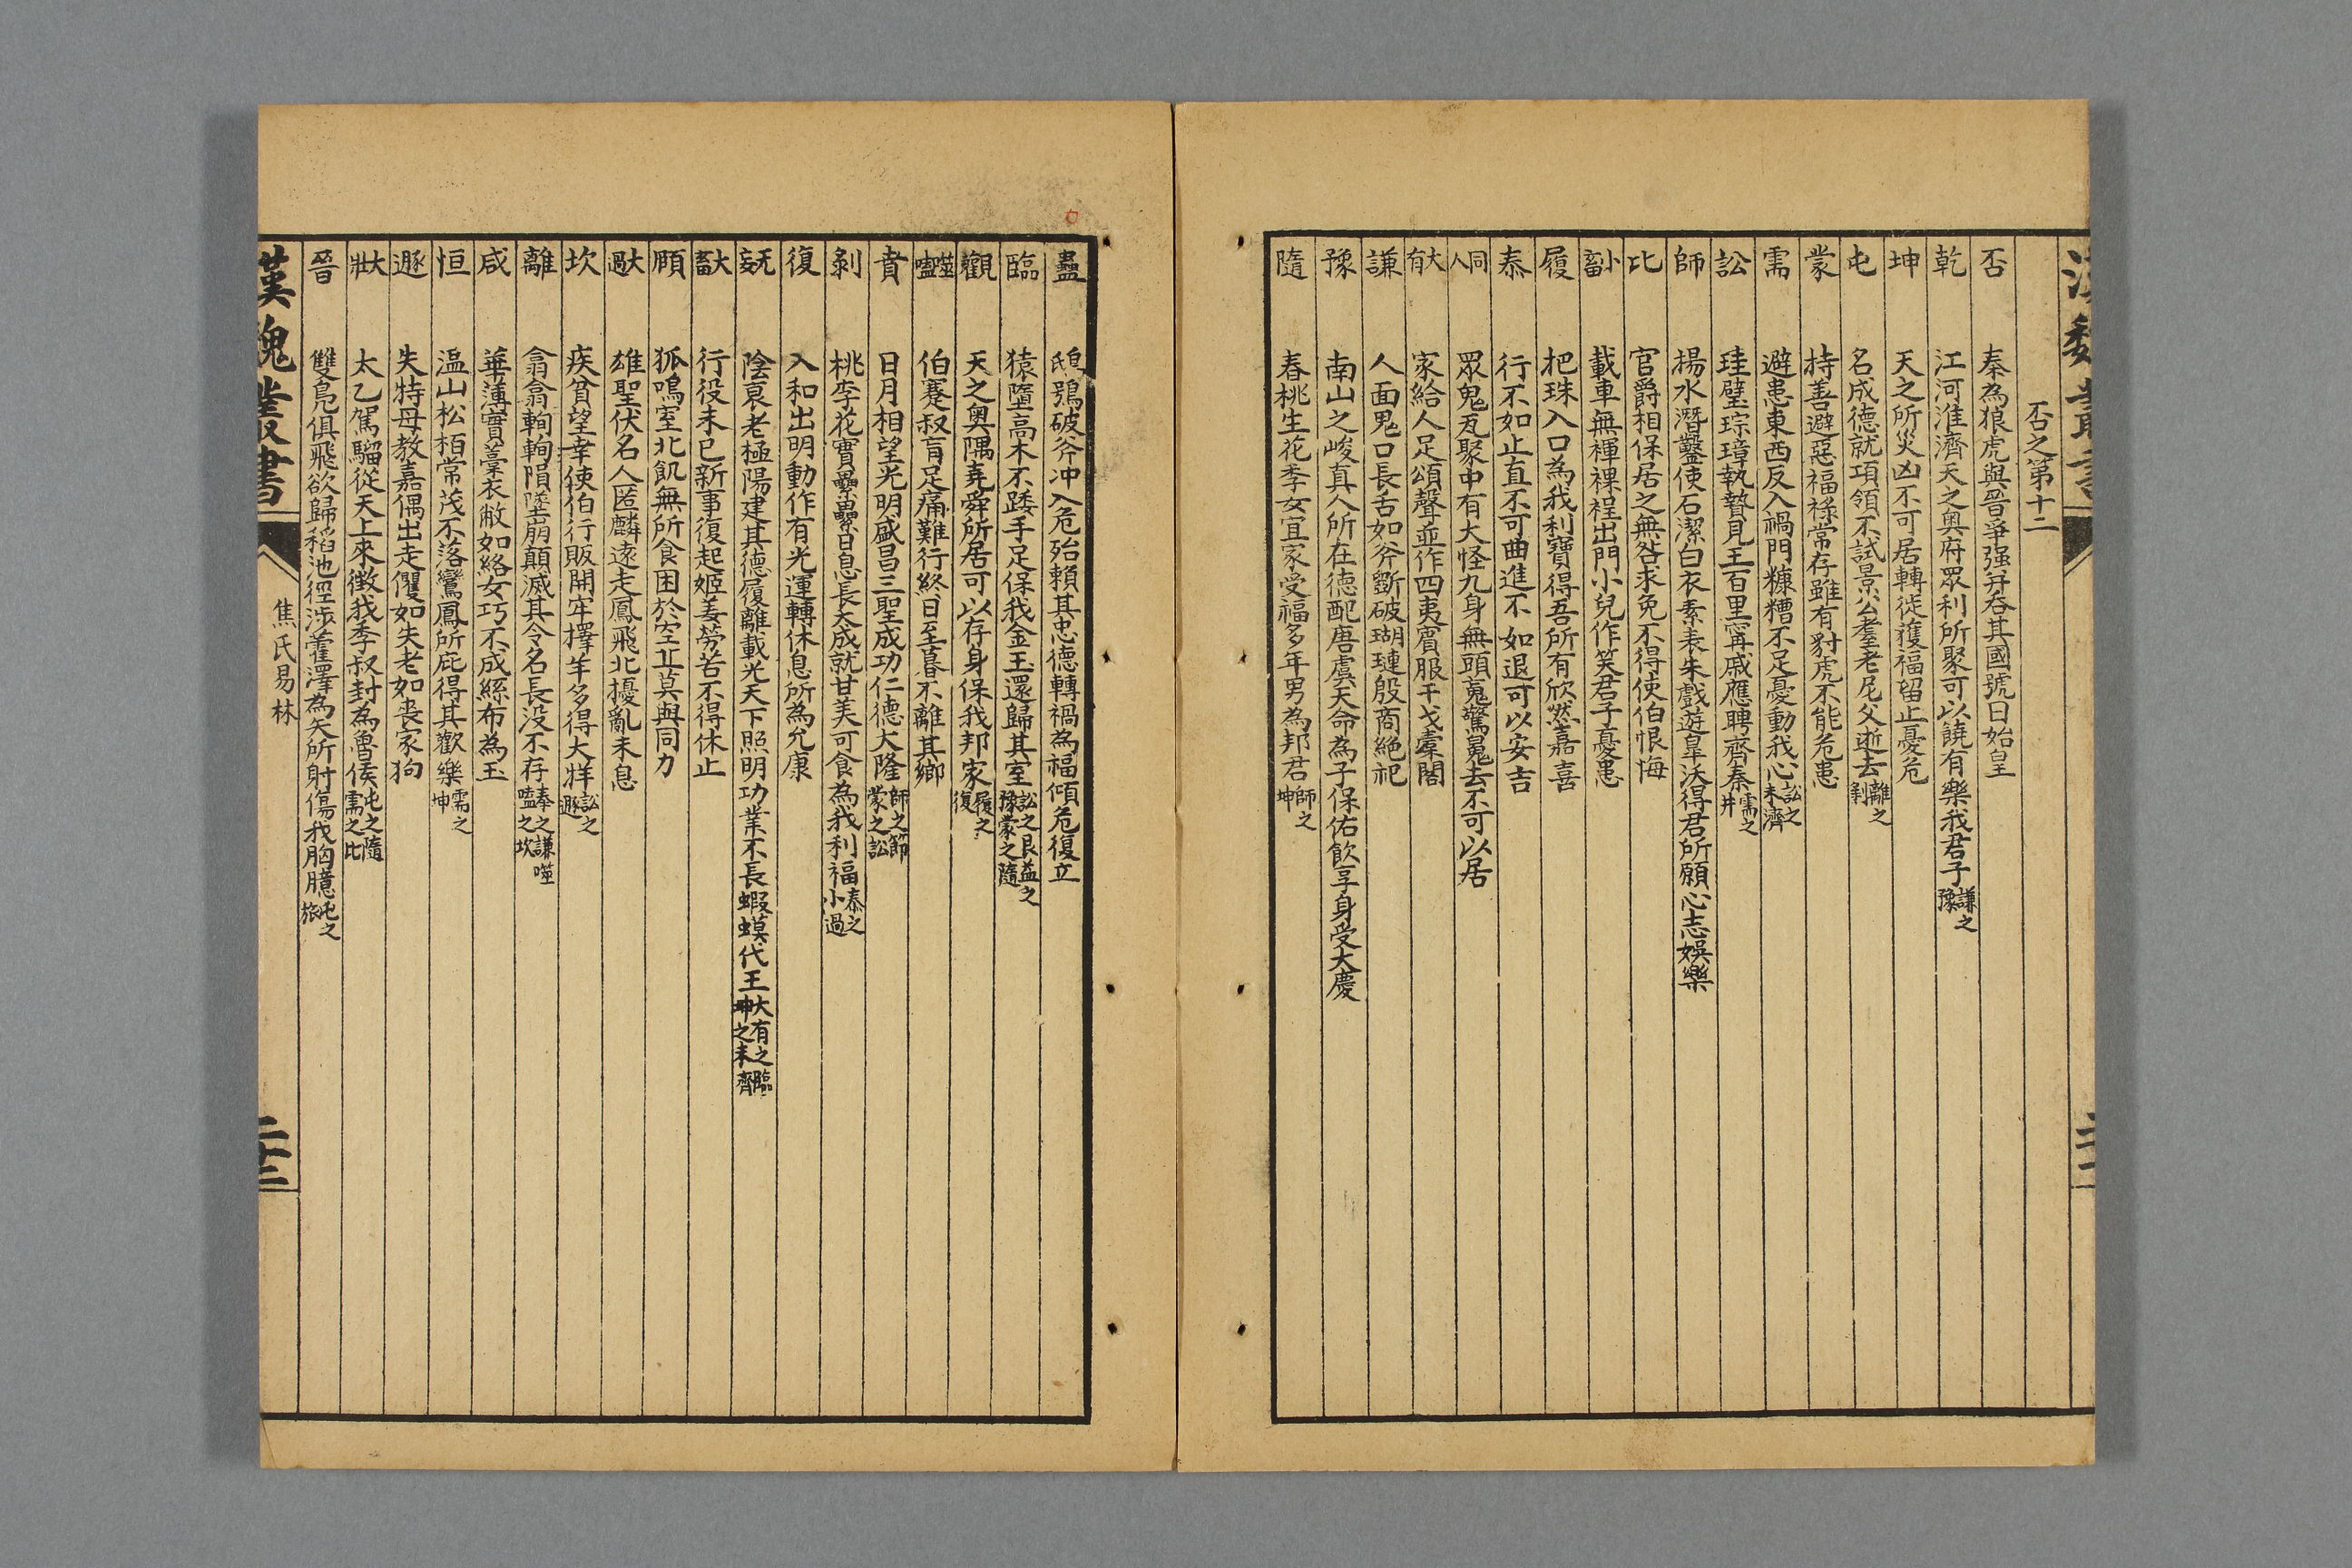 漢魏叢書
否之第十二
否 秦為狼虎與晉爭强并吞其國號曰始皇
乾 江河淮濟天之奧府眾利所聚可以饒有樂我君子謙之豫
坤 天之所災凶不可居轉徙獲福留止憂危
屯 名成德就項領不試景公耄老尼父逝去離之剝
蒙 持善避惡福祿常存雖有豺虎不能危患
需 避患東西反入禍門糠糟不足憂動我心訟之未濟
訟 珪璧琮璋執贄見王百里甯戚應聘齊秦需之井
師 揚水潛鑿使石潔白衣素表朱戲遊皐沃得君所願心志娛樂
比 官爵相保居之無咎求免不得使伯恨悔
小畜 載車無褌裸裎出門小兒作笑君子憂患
履 把珠入口為我利寶得吾所有欣然嘉喜
泰 行不如止直不可曲進不如退可以安吉
同人 眾鬼瓦聚中有大怪九身無頭䰟驚鬼去不可以居
大有 家給人足頌聲並作四夷賓服干戈櫜閣
謙 人面鬼口長舌如斧斷破瑚璉殷商絕祀
豫 南山之峻真人所在德配唐虞天命為子保佑飲享身受大慶
隨 春桃生花季女宜家受福多年男為邦君師之坤
蠱 鴟鴞破斧冲人危殆賴其忠德轉禍為福傾危復立
臨 猿墮高木不踒手足保我金玉還歸其室訟之艮益之豫蒙之隨
觀 天之奧隅堯舜所居可以存身保我邦家履之復
噬嗑 伯蹇叔盲足痛難行終日至暮不離其鄉
賁 日月相望光明盛昌三聖成功仁德大隆師之節蒙之訟
剝 桃李花實纍纍日息長大成就甘美可食為我利福泰之小過
復 入和出明動作有光運轉休息所為允康
无妄 陰衰老極陽建其德履離載光天下照明功業不長蝦蟆代王大有之臨坤之未齊
大畜 行役未已新事復起姬姜勞苦不得休止
頤 狐鳴室北飢無所食困於空丘莫與同力
大過 雄聖伏名人匿麟遠走鳳飛北擾亂未息
坎 疾貧望幸使伯行販開牢擇羊多得大牂訟之遯
離 翕翕輷輷隕墜崩顛滅其令名長没不存泰之謙噬嗑之坎
咸 華薄實槀衣敝如絡女巧不成絲布為玉
恒 温山松栢常茂不落鸞鳳所庇得其歡樂需之坤
遯 失恃母教嘉偶出走㒇如失老如喪家狗
大壯 太乙駕騮從天上來徵我季叔封為魯侯屯之隨需之比
晉 雙鳧俱飛欲歸稻池徑涉藿澤為矢所射傷我胸臆屯之旅
漢魏叢書 焦氏易林 二十二